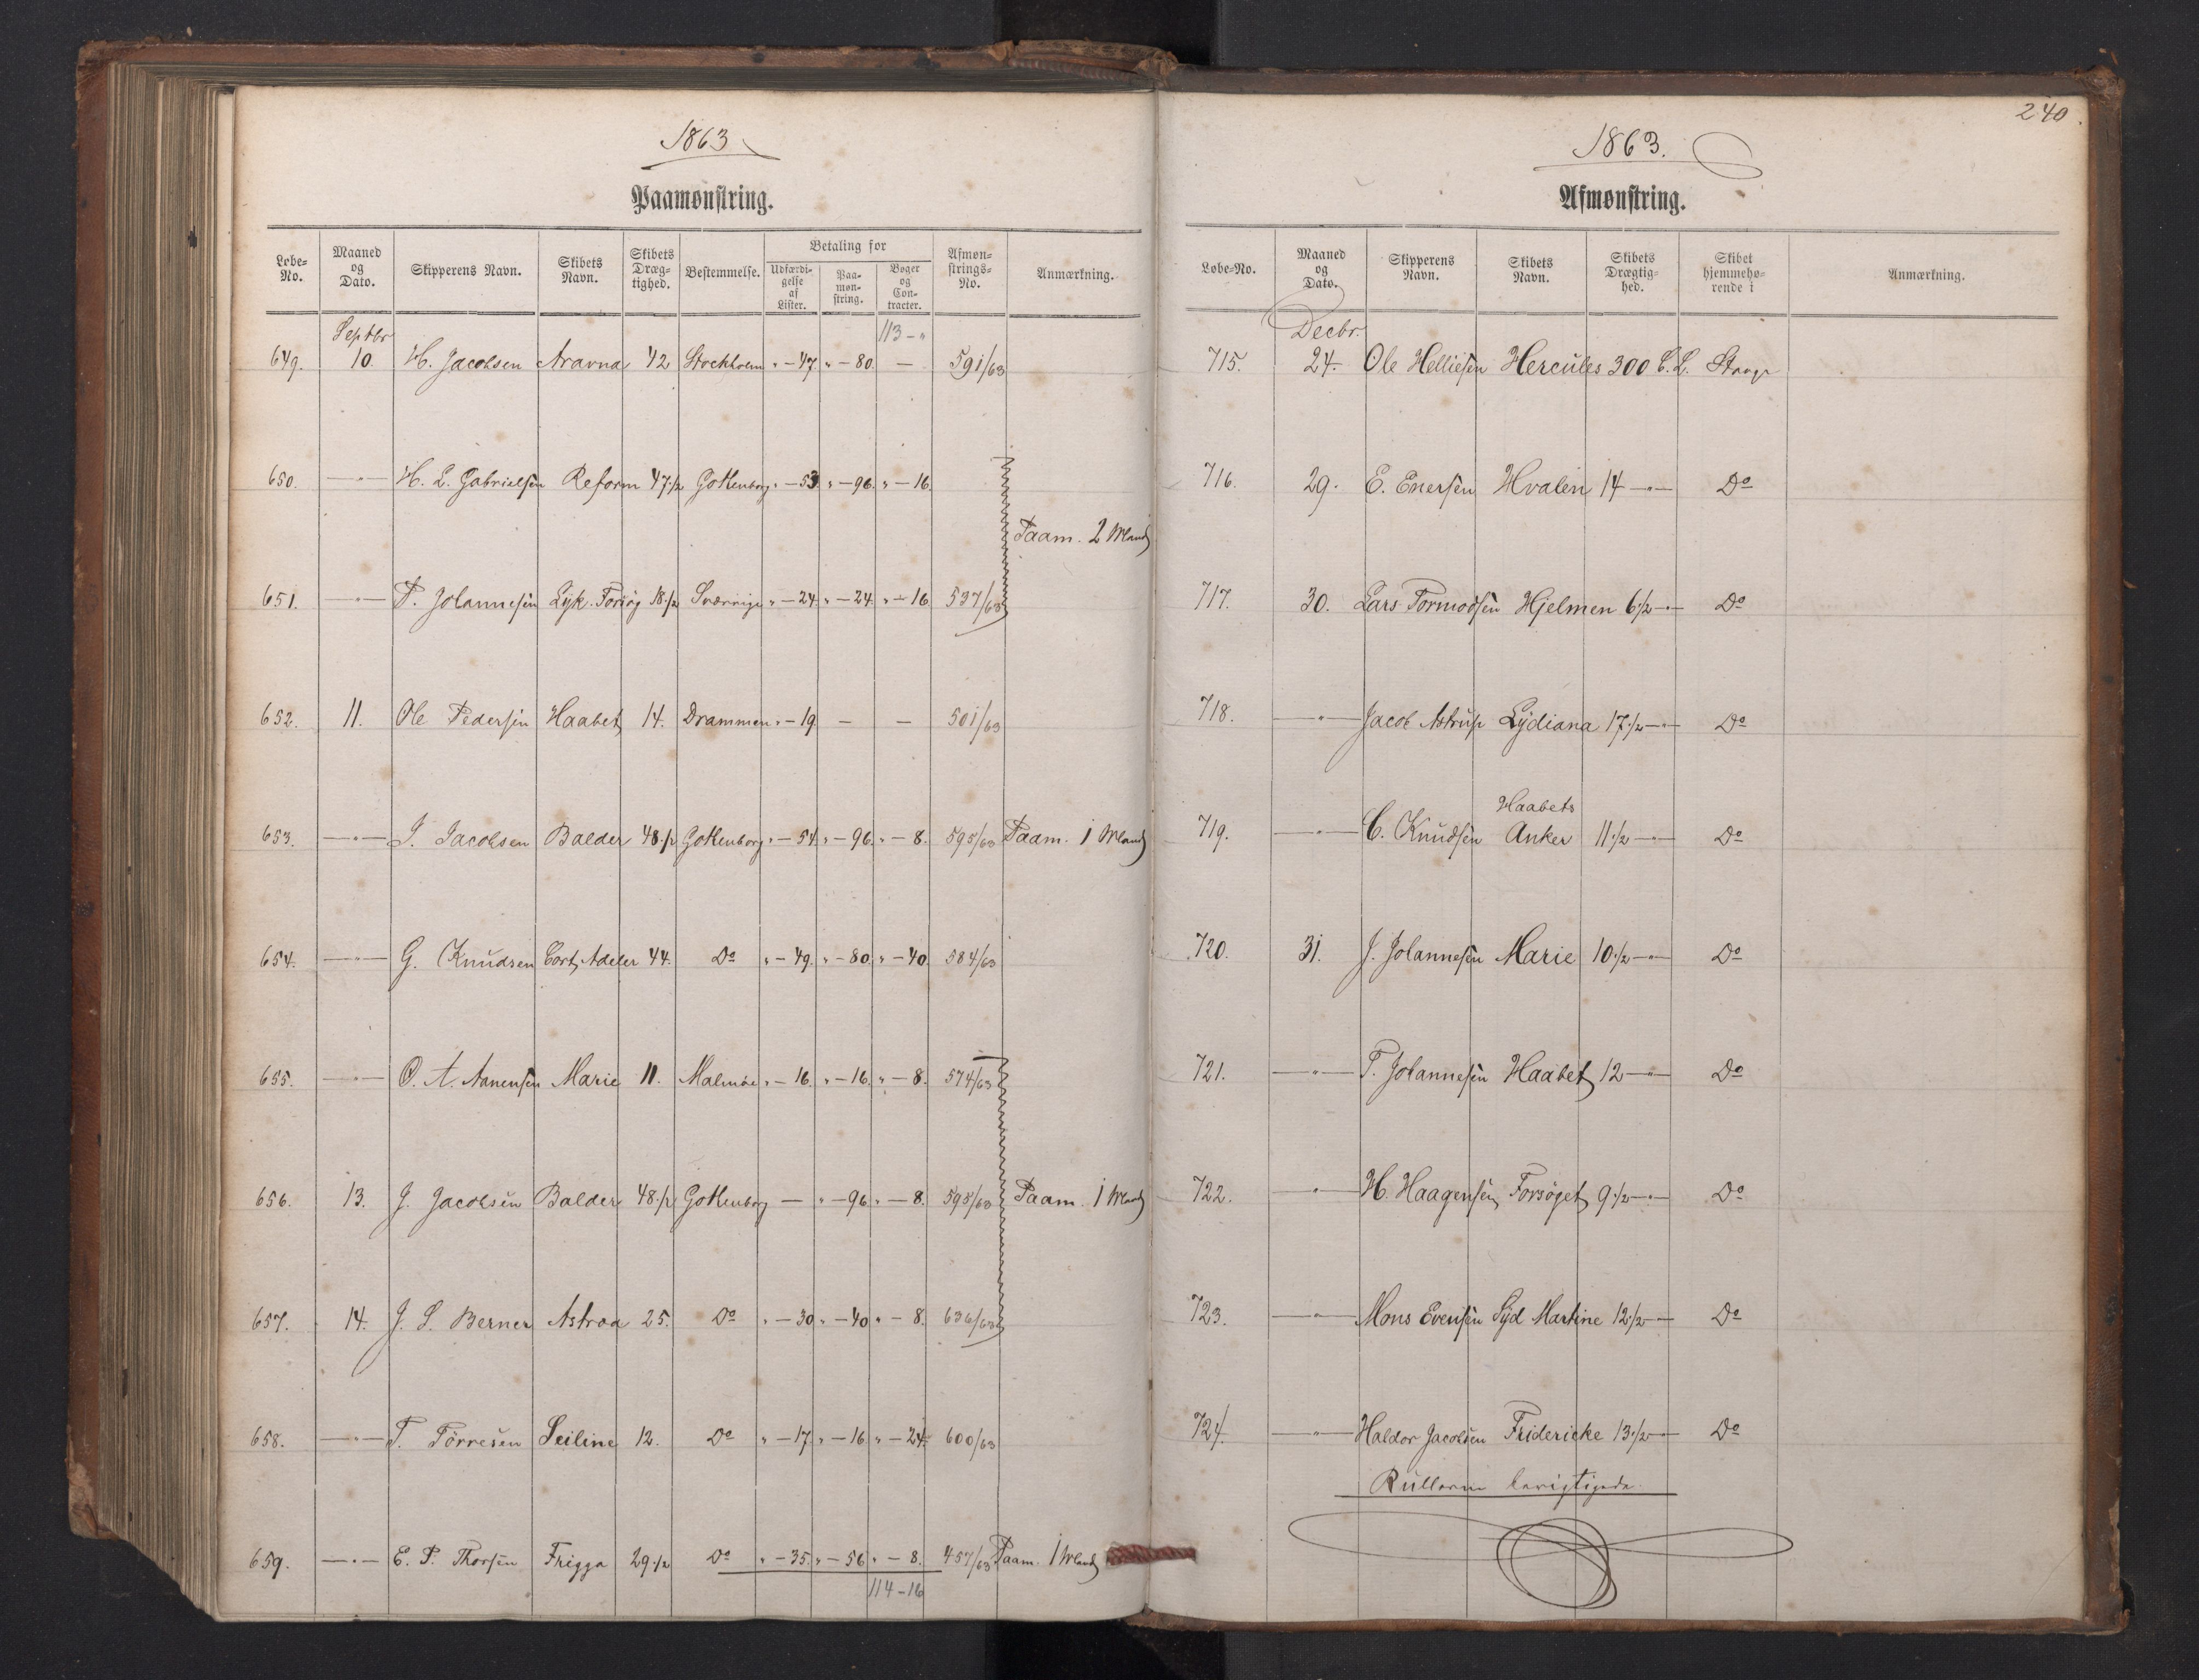 1863
Paamønstring.
Løbe-No. Maaned og Dato. Skipperens Navn. Skibets Navn. Skibets Drægtighed. Bestemmelse. Betaling for Udfærdigelse af Lister. Paamønstring. Bøger og Contracter. Afmønstrings-No. Anmærkning.
Septbr 113 - "
649. 10. H. Jacobsen Aravna 42 Stockholm " - 47 " - 80. — 591/63
650. —"— H. L. Gabrielsen Reform 47 1/2 Gothenborg " - 53. " - 96. " - 16.
Paam. 2 Mand
651. —"— P. Johannesen Lyk. Forsøg 18 1/2 Sverrige " - 24. " - 24. " - 16 537/63
652. 11. Ole Pedersen Haabet 14. Drammen " - 19. — — 501/63
653. —"— J. Jacobsen Balder 48 1/2 Gothenborg " - 54. " - 96. " - 8. 595/63 Paam. 1 Mand
654. —"— G. Knudsen Cort Adeler 44. Do " - 49. " - 80. " - 40 584/63
655. —"— O. A. Aanensen Marie 11. Malmöe " - 16. " - 16. " - 8. 574/63
656. 13. J. Jacobsen Balder 48 1/2 Gothenborg — " - 96. " - 8. 595/63 Paam. 1 Mand
657. 14. J. S. Berner Astræa 25. Do " - 30. " - 40 " - 8. 636/63
658. —"— T. Törresen Seiline 12. Do " - 17. " - 16. " - 24. 600/63
659. —"— E. P. Thorsen Frigga 29 1/2 Do " - 35. " - 56. " - 8. 457/63 Paam. 1 Mand
114 - 16
240.
1863.
Afmønstring.
Løbe-No. Maaned og Dato. Skipperens Navn. Skibets Navn. Skibets Drægtighed. Skibet hjemmehørende i Anmærkning.
Decbr.
715. 24. Ole Helliesen Hercules 300 C. L. Stavgr
716. 29. E. Enersen Hvalen 14 —"— Do
717. 30. Lars Tormodsen Hjelmen 6 1/2 —"— Do
718. —"— Jacob Astrup Lydiana 17 1/2 —"— Do
Haabets
719. —"— C. Knudsen Anker 11 1/2 —"— Do
720. 31. J. Johannesen Marie 10 1/2 —"— Do
721. —"— T. Johannesen Haabet 12 —"— Do
722. —"— H. Haagensen Forsöget 9 1/2 —"— Do
723. —"— Mons Evensen Syd Martine 12 1/2 — Do
724. —"— Haldor Jacobsen Fridericke 13 1/2 — Do
Rullerne berigtigede.